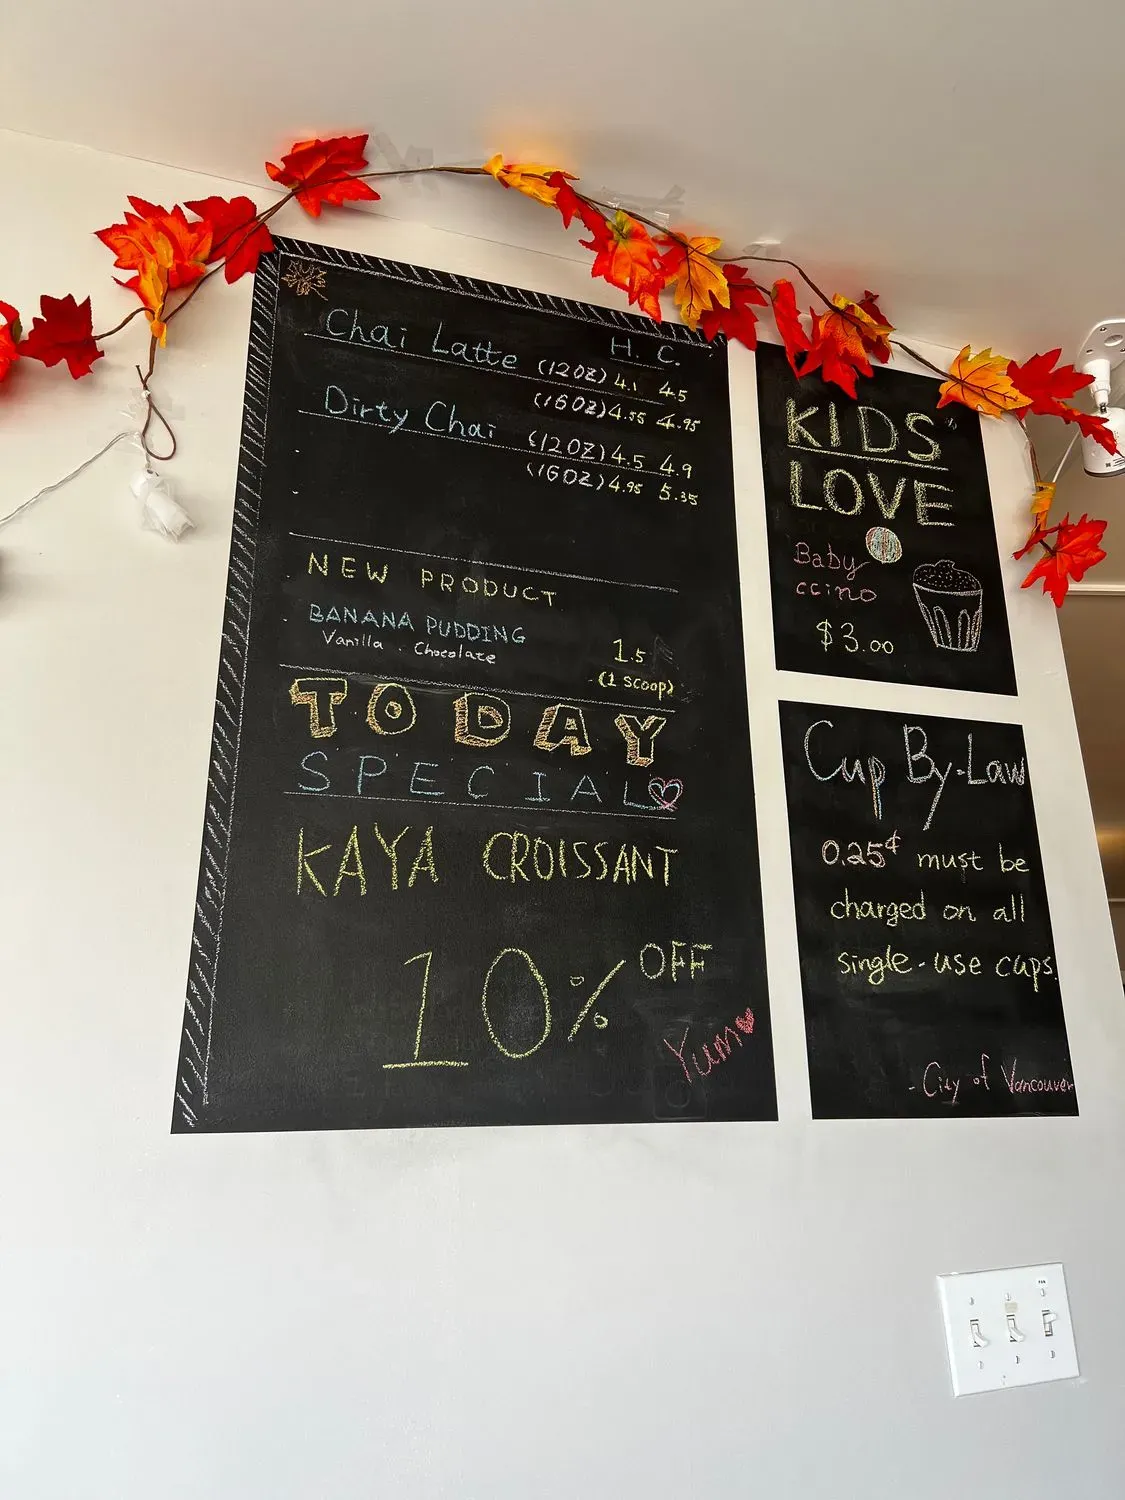 H. C.
Chai Latte (12OZ) 4.1 4.5
(16OZ) 4.55 4.95
Dirty Chai (12OZ) 4.5 4.9
(16OZ) 4.95 5.35
NEW PRODUCT
BANANA PUDDING
Vanilla . Chocolate 1.5
(1 scoop)
TODAY
SPECIAL
KAYA CROISSANT
10% OFF
Yum
KIDS
LOVE
Baby
ccino
$3.00
Cup By-Law
0.25¢ must be
charged on all
single-use cups.
- City of Vancouver